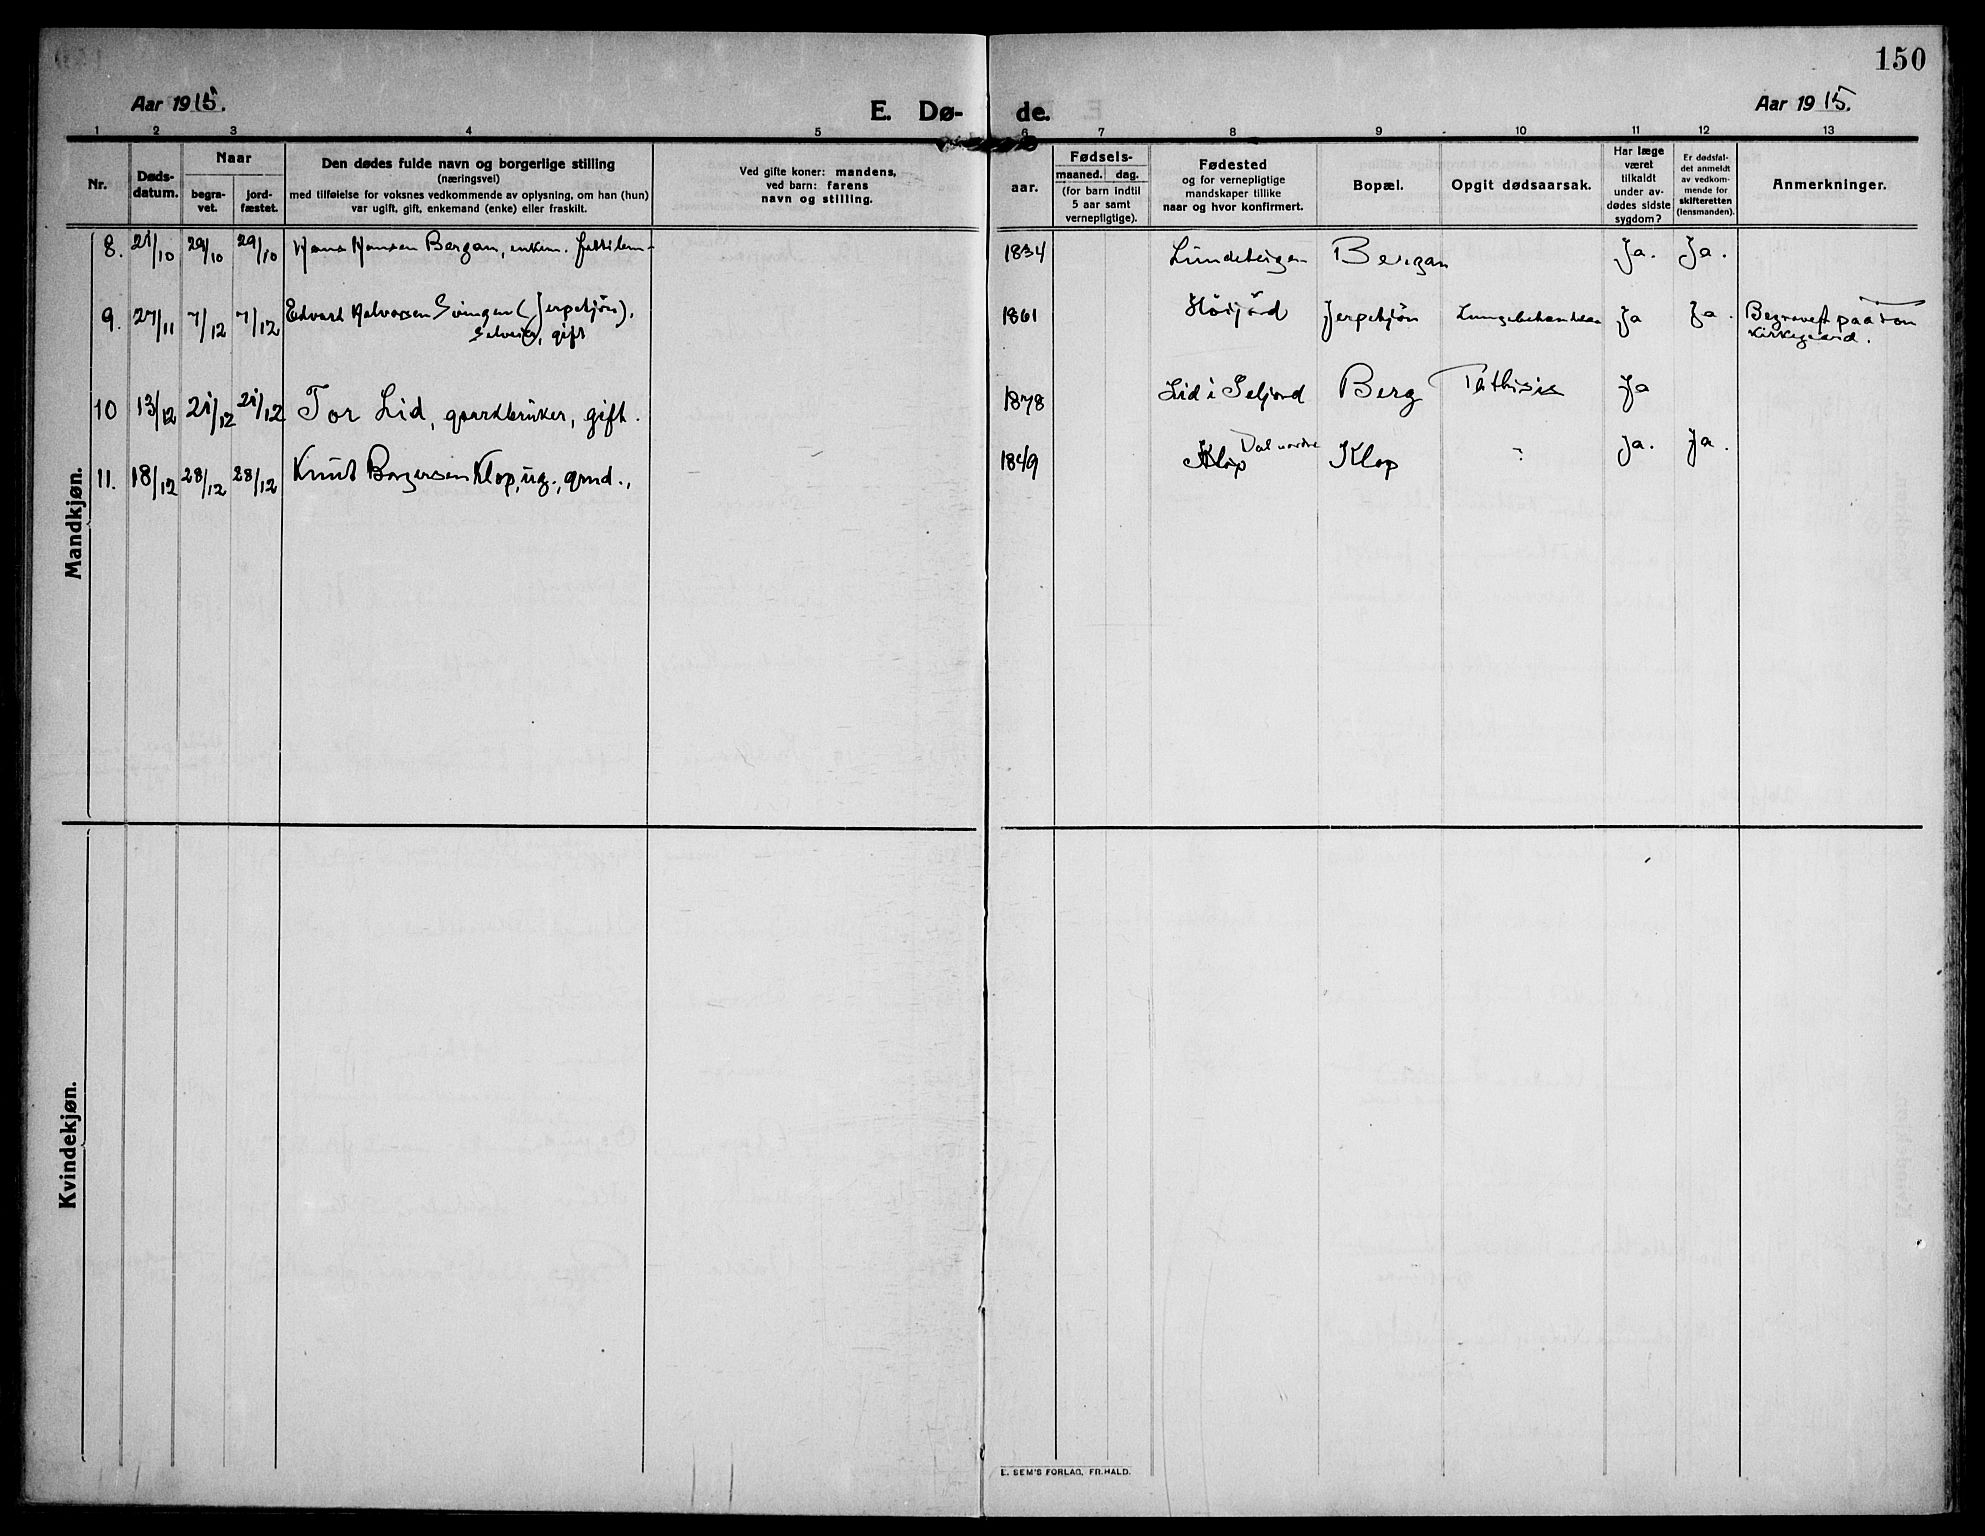 150
Aar 1915.
E. Dø-
de.
Aar 1915.
1 2 3 4 5 6 7 8 9 10 11 12 13
Nr.
Døds-
datum.
Naar
begra-
vet.
jord-
fæstet.
Den dødes fulde navn og borgerlige stilling
(næringsvei)
med tilføielse for voksnes vedkommende av oplysning, om han (hun)
var ugift, gift, enkemand (enke) eller fraskilt.
Ved gifte koner: mandens,
ved barn: farens
navn og stilling.
aar.
Fødsels-
maaned. dag.
(for barn indtil
5 aar samt
vernepligtige).
Fødested
og for vernepligtige
mandskaper tillike
naar og hvor konfirmert.
Bopæl.
Opgit dødsaarsak.
Har læge
været
tilkaldt
under av-
dødes sidste
sygdom?
Er dødsfal-
det anmeldt
av vedkom-
mende for
skifteretten
(lensmanden).
Anmerkninger.
Mandkjøn.
8. 21/10 29/10 29/10 Hans Hansen Bergan, enkem. fattilem - 1834 Bergan Ja. Ja.
9. 27/11 7/12 7/12 Edvard Halvorsen Svingen (Jerpetjøn), 1861 Jerpetjøn Ja Ja. Begravet paa
Selveier, gift kirkegaard.
10 13/12 21/12 21/12 Tor Lid, gaardbruker, gift. 1878 Lid i Seljord Berg Ja
11. 18/12 28/12 28/12 Knut Borgersen Klop, ug., grmd., - 1849 Dal nordre Klop " Ja. Ja.
Kvindekjøn.
E. SEM'S FORLAG, FR.HALD.